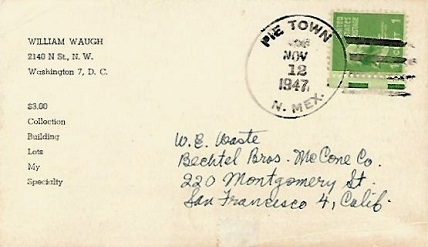 WILLIAM WAUGH
2140 N St., N. W.
Washington 7, D. C.
$3.00
Collection
Building
Lots
My
Specialty
PIE TOWN
NOV
12
1947
N. MEX.
1
W. E. Waste
Bechtel Bros. McCone Co.
220 Montgomery St.
San Francisco 4, Calif.